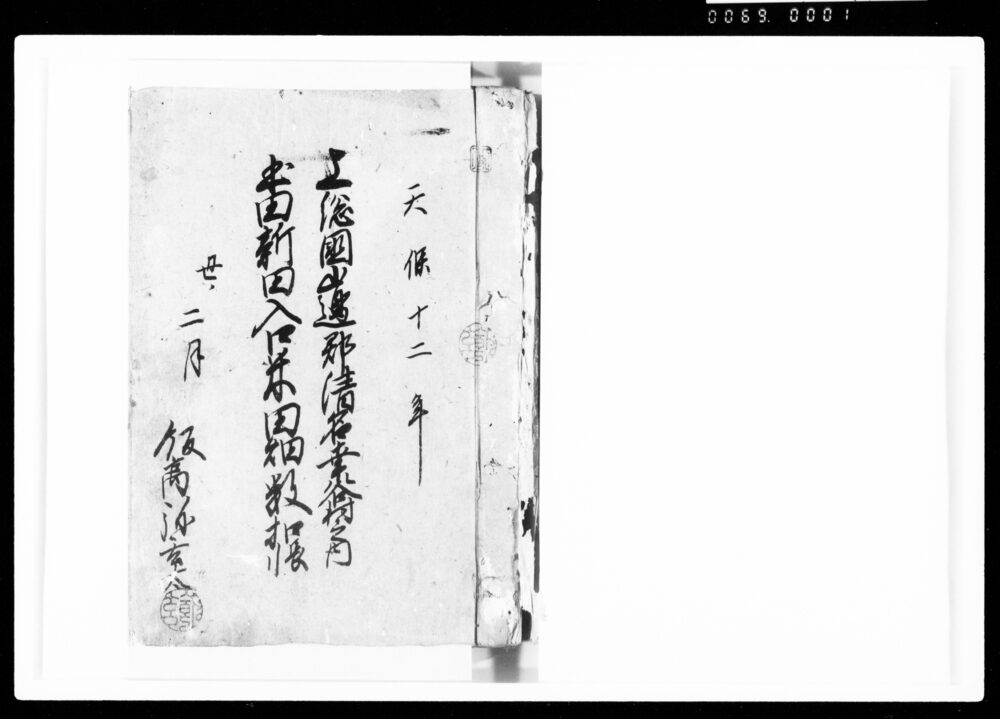 0069. 0001
天保十二年
上総國山邊郡清名幸谷村
本田新田入口米田畑数帳
丑
二月
飯高